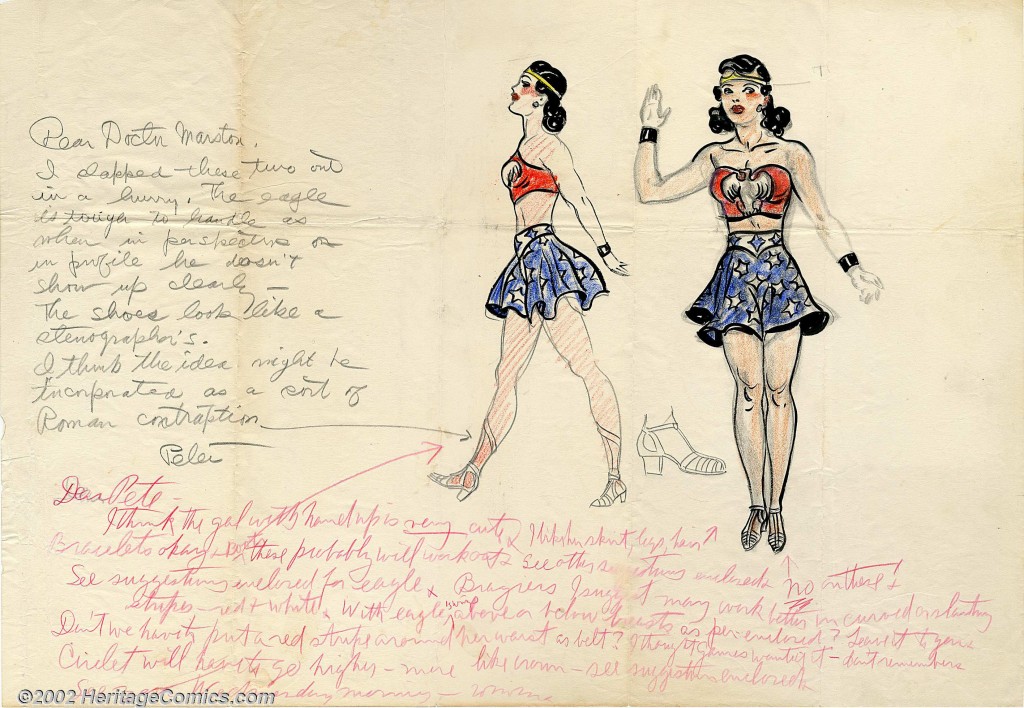 Dear Doctor Marston,
I slapped these two out
in a hurry. The eagle
is tough to handle as
when in perspective or
in profile he doesn't
show up clearly —
The shoes look like a
stenographer's.
I think the idea might be
incorporated as a sort of
Roman contraption
Peter
Dear Pete —
I think the gal with hand up is very cute. I like her skirt, legs, hair
Bracelets okay + boots. these probably will work out. See other suggestions enclosed.
No on these!
See suggestions enclosed for eagle. I suggest may work better in curved or slanting
stripes — red + white. With eagle's wings above or below breasts as per enclosed? Leave it to you.
Don't we have to put a red stripe around her waist as belt? I thought Gaines wanted it — don't remember.
Circlet will have to go higher — more like crown — see suggestions enclosed.
Wednesday morning —
©2002 HeritageComics.com